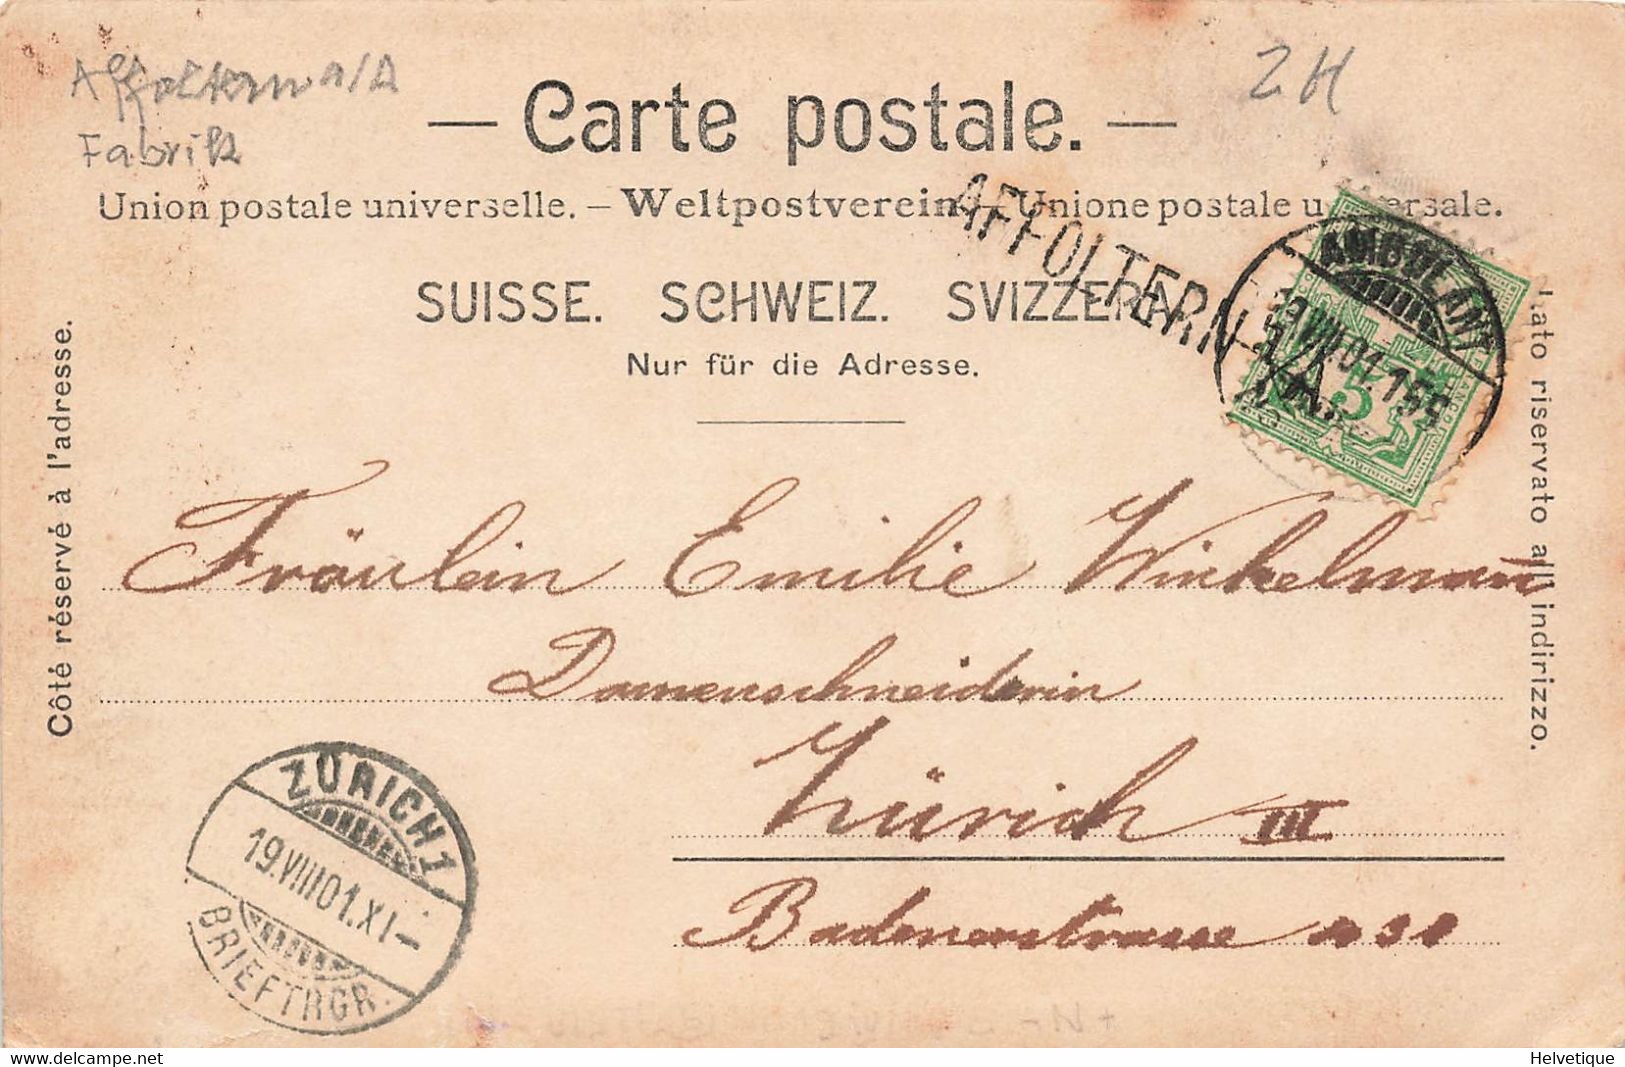 Affoltern a/A
Fabrik
ZH
— Carte postale. —
Union postale universelle. – Weltpostverein – Unione postale universale.
SUISSE. SCHWEIZ. SVIZZERA.
Nur für die Adresse.
Côté réservé à l'adresse.
Lato riservato all' indirizzo.
AFFOLTERN A/A
AMBULANT
19.VIII.01.155
5
FRANCO
Fräulein Emilie Winkelmañ
Damenschneiderin
Zürich III
Badenerstrasse
ZÜRICH 1
19.VIII.01.XI–
BRIEFTRGR.
Helvetique
delcampe.net